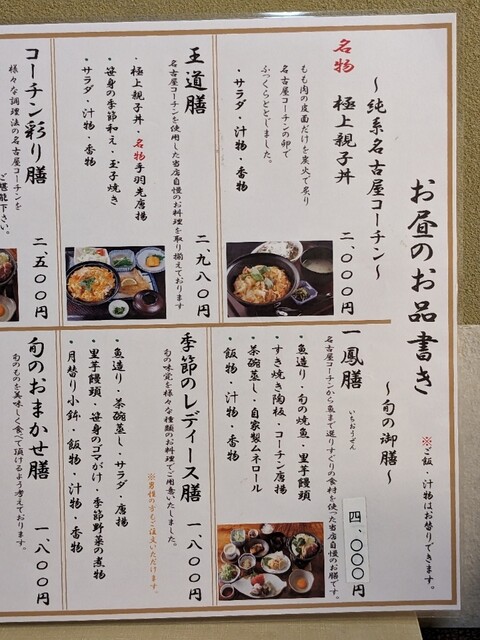 お昼のお品書き
※ご飯・汁物はお替りできます。
～純系名古屋コーチン～
名物 極上親子丼
もも肉の皮面だけを炭火で炙り
名古屋コーチンの卵で
ふっくらととじました。
・サラダ・汁物・香物
二、〇〇〇円
王道膳
名古屋コーチンを使用した当店自慢のお料理を取り揃えております
・極上親子丼・名物手羽先唐揚
・笹身の季節和え・玉子焼き
・サラダ・汁物・香物
二、九八〇円
コーチン彩り膳
様々な調理法の名古屋コーチンを
ご堪能下さい。
二、五〇〇円
～旬の御膳～
一鳳膳
いちおうぜん
名古屋コーチンから魚まで選りすぐりの食材を使った当店自慢のお膳です。
・魚造り・旬の焼魚・里芋饅頭
・すき焼き陶板・コーチン唐揚
・茶碗蒸し・自家製ムネロール
・飯物・汁物・香物
四、〇〇〇円
季節のレディース膳
旬の味覚を様々な種類のお料理でご用意いたしました。
※男性の方もご注文いただけます。
・魚造り・茶碗蒸し・サラダ・唐揚
・里芋饅頭・笹身のゴマがけ・季節野菜の煮物
・月替り小鉢・飯物・汁物・香物
一、八〇〇円
旬のおまかせ膳
旬のものを美味しく食べて頂けるよう考えております。
一、八〇〇円